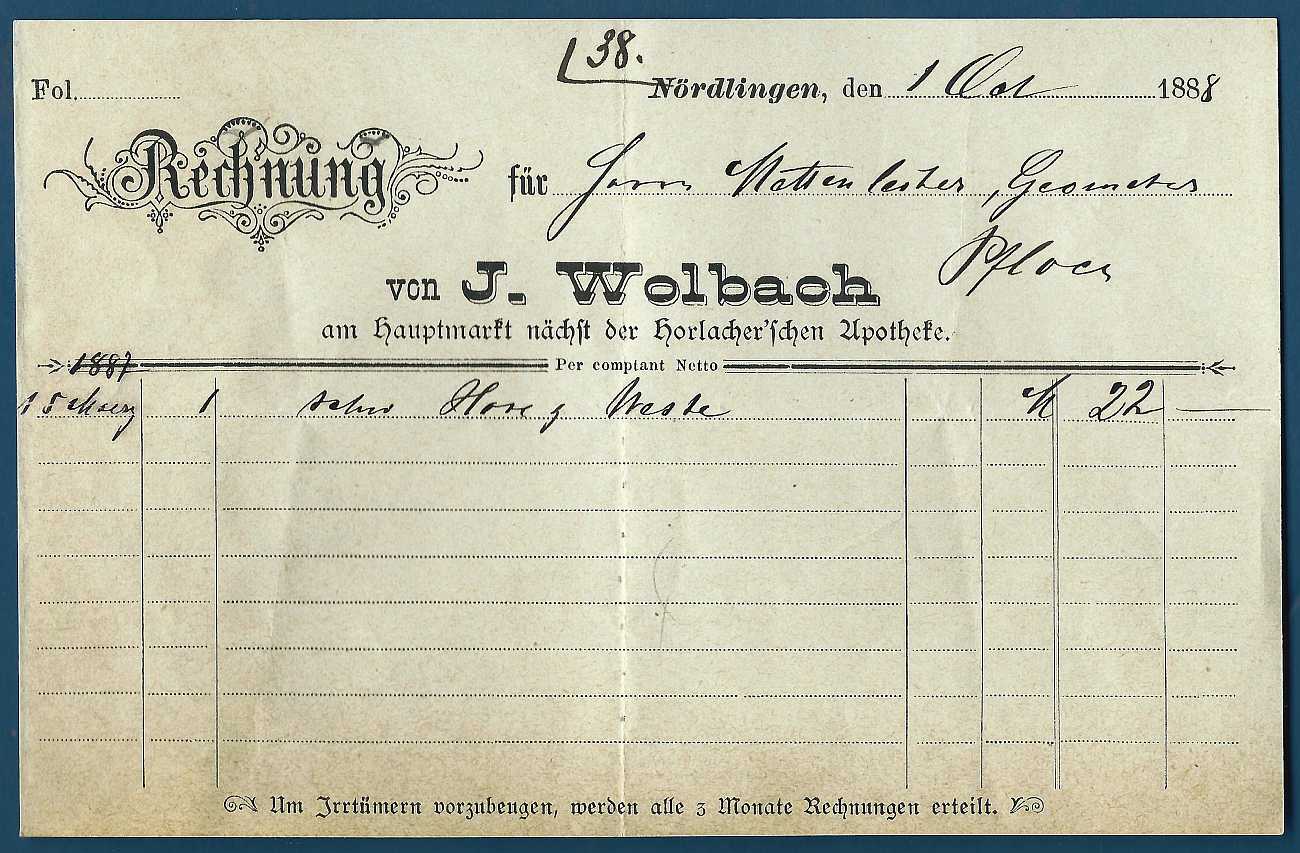 38.
Fol. Nördlingen, den 1 Oct 1888
Rechnung für Herrn Mettenleiter, Geometer
von J. Wolbach
am Hauptmarkt nächst der Horlacher'schen Apotheke.
1887 Per comptant Netto
15 Maerz 1 schw Hose & Weste M 22 —
Um Irrtümern vorzubeugen, werden alle 3 Monate Rechnungen erteilt.